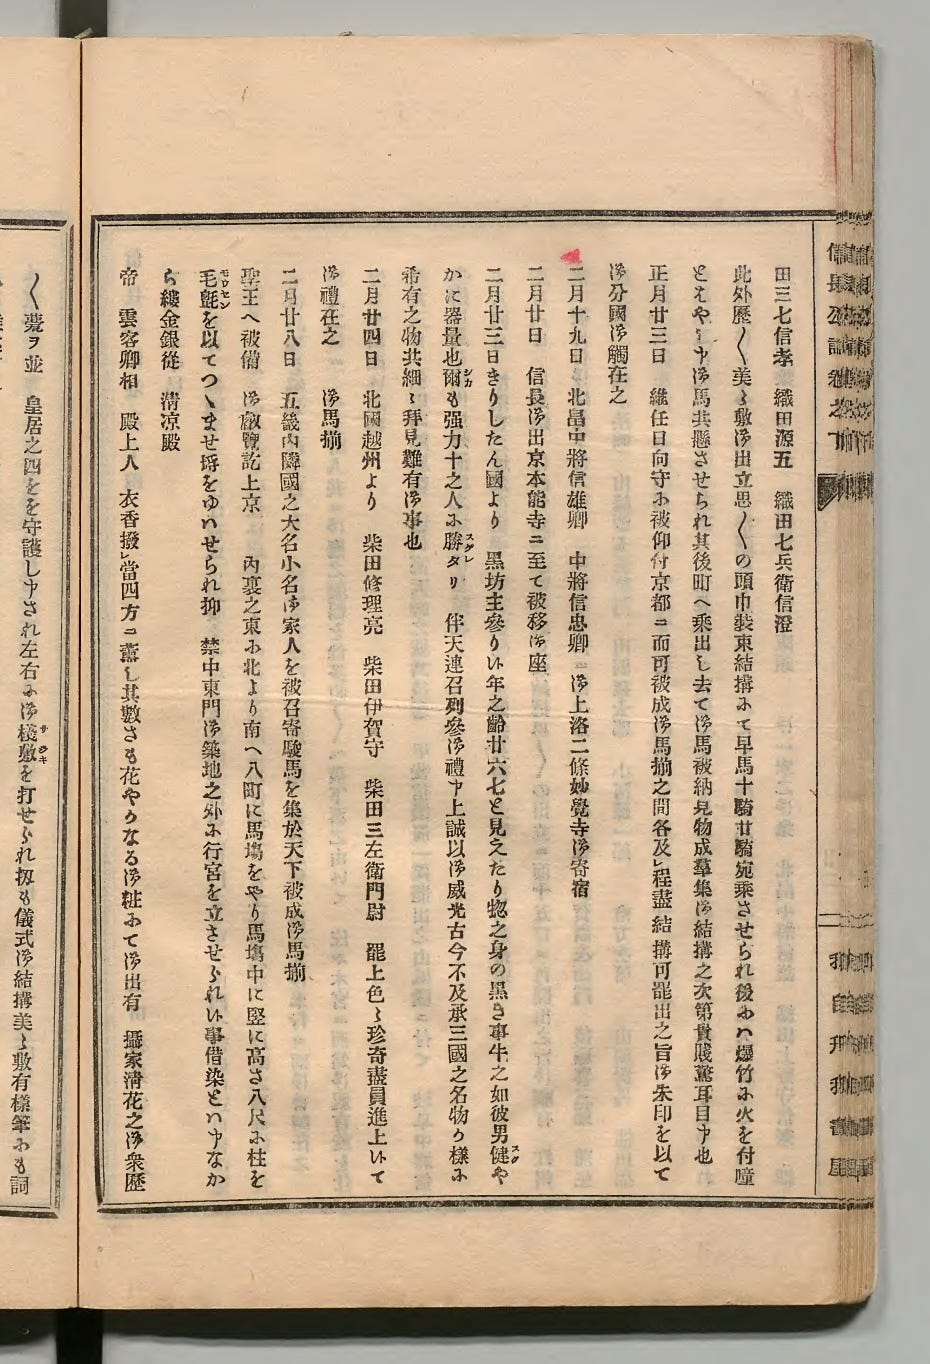 田三七信孝　織田源五　織田七兵衛信澄
此外歴〱美〻敷御出立思〱の頭巾装束結搆ニて早馬十騎廿騎宛乗させられ後ニハ爆竹ニ火を付噇
とはやし申御馬共懸させられ其後町へ乗出し去て御馬被納見物成羣集御結搆之次第貴賤驚耳目申也
正月廿三日　維任日向守ニ被仰付京都ニ而可被成御馬揃之間各及レ程盡結搆可罷出之旨御朱印を以て
御分國御觸在之
二月十九日　北畠中將信雄卿　中將信忠卿ニ御上洛二條妙覺寺御寄宿
二月廿日　信長御出京本能寺ニ至て被移御座
二月廿三日きりしたん國より　黒坊主參り候年之齢廿六七と見えたり惣之身の黒き事牛之如彼男健や
かに器量也爾も强力十之人ニ勝タリ　伴天連召列參御禮申上誠以御威光古今不及承三國之名物か樣ニ
希有之物共細〻拜見難有御事也
二月廿四日　北國越州より　柴田修理亮　柴田伊賀守　柴田三左衛門尉　罷上色〻珍奇盡員進上候て
御禮在之　御馬揃
二月廿八日　五畿内隣國之大名小名御家人を被召寄駿馬を集於天下被成御馬揃
聖王へ被備　御叡覽訖上京　内裏之東ニ北より南へ八町に馬塲をやり馬塲中に竪に高さ八尺ニ柱を
毛氈を以てつゝませ埒をゆハせられ抑　禁中東門御築地之外ニ行宮を立させられ候事借染とハ申なか
ら縷金銀從　清凉殿
帝　雲客卿相　殿上人　衣香撥レ當四方ニ薰し其數さも花やかなる御粧ニて御出有　攝家淸花之御衆歷
〱甍ヲ並　皇居之四をを守護し申され左右ニ御棧敷を打せられ扨も儀式御結搆美〻敷有樣筆ニも詞